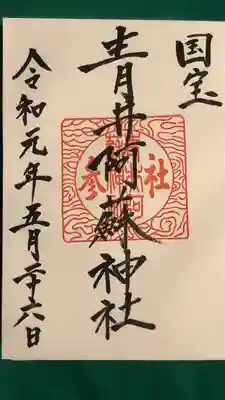 国宝
青井阿蘇神社
令和元年五月二十六日
参社